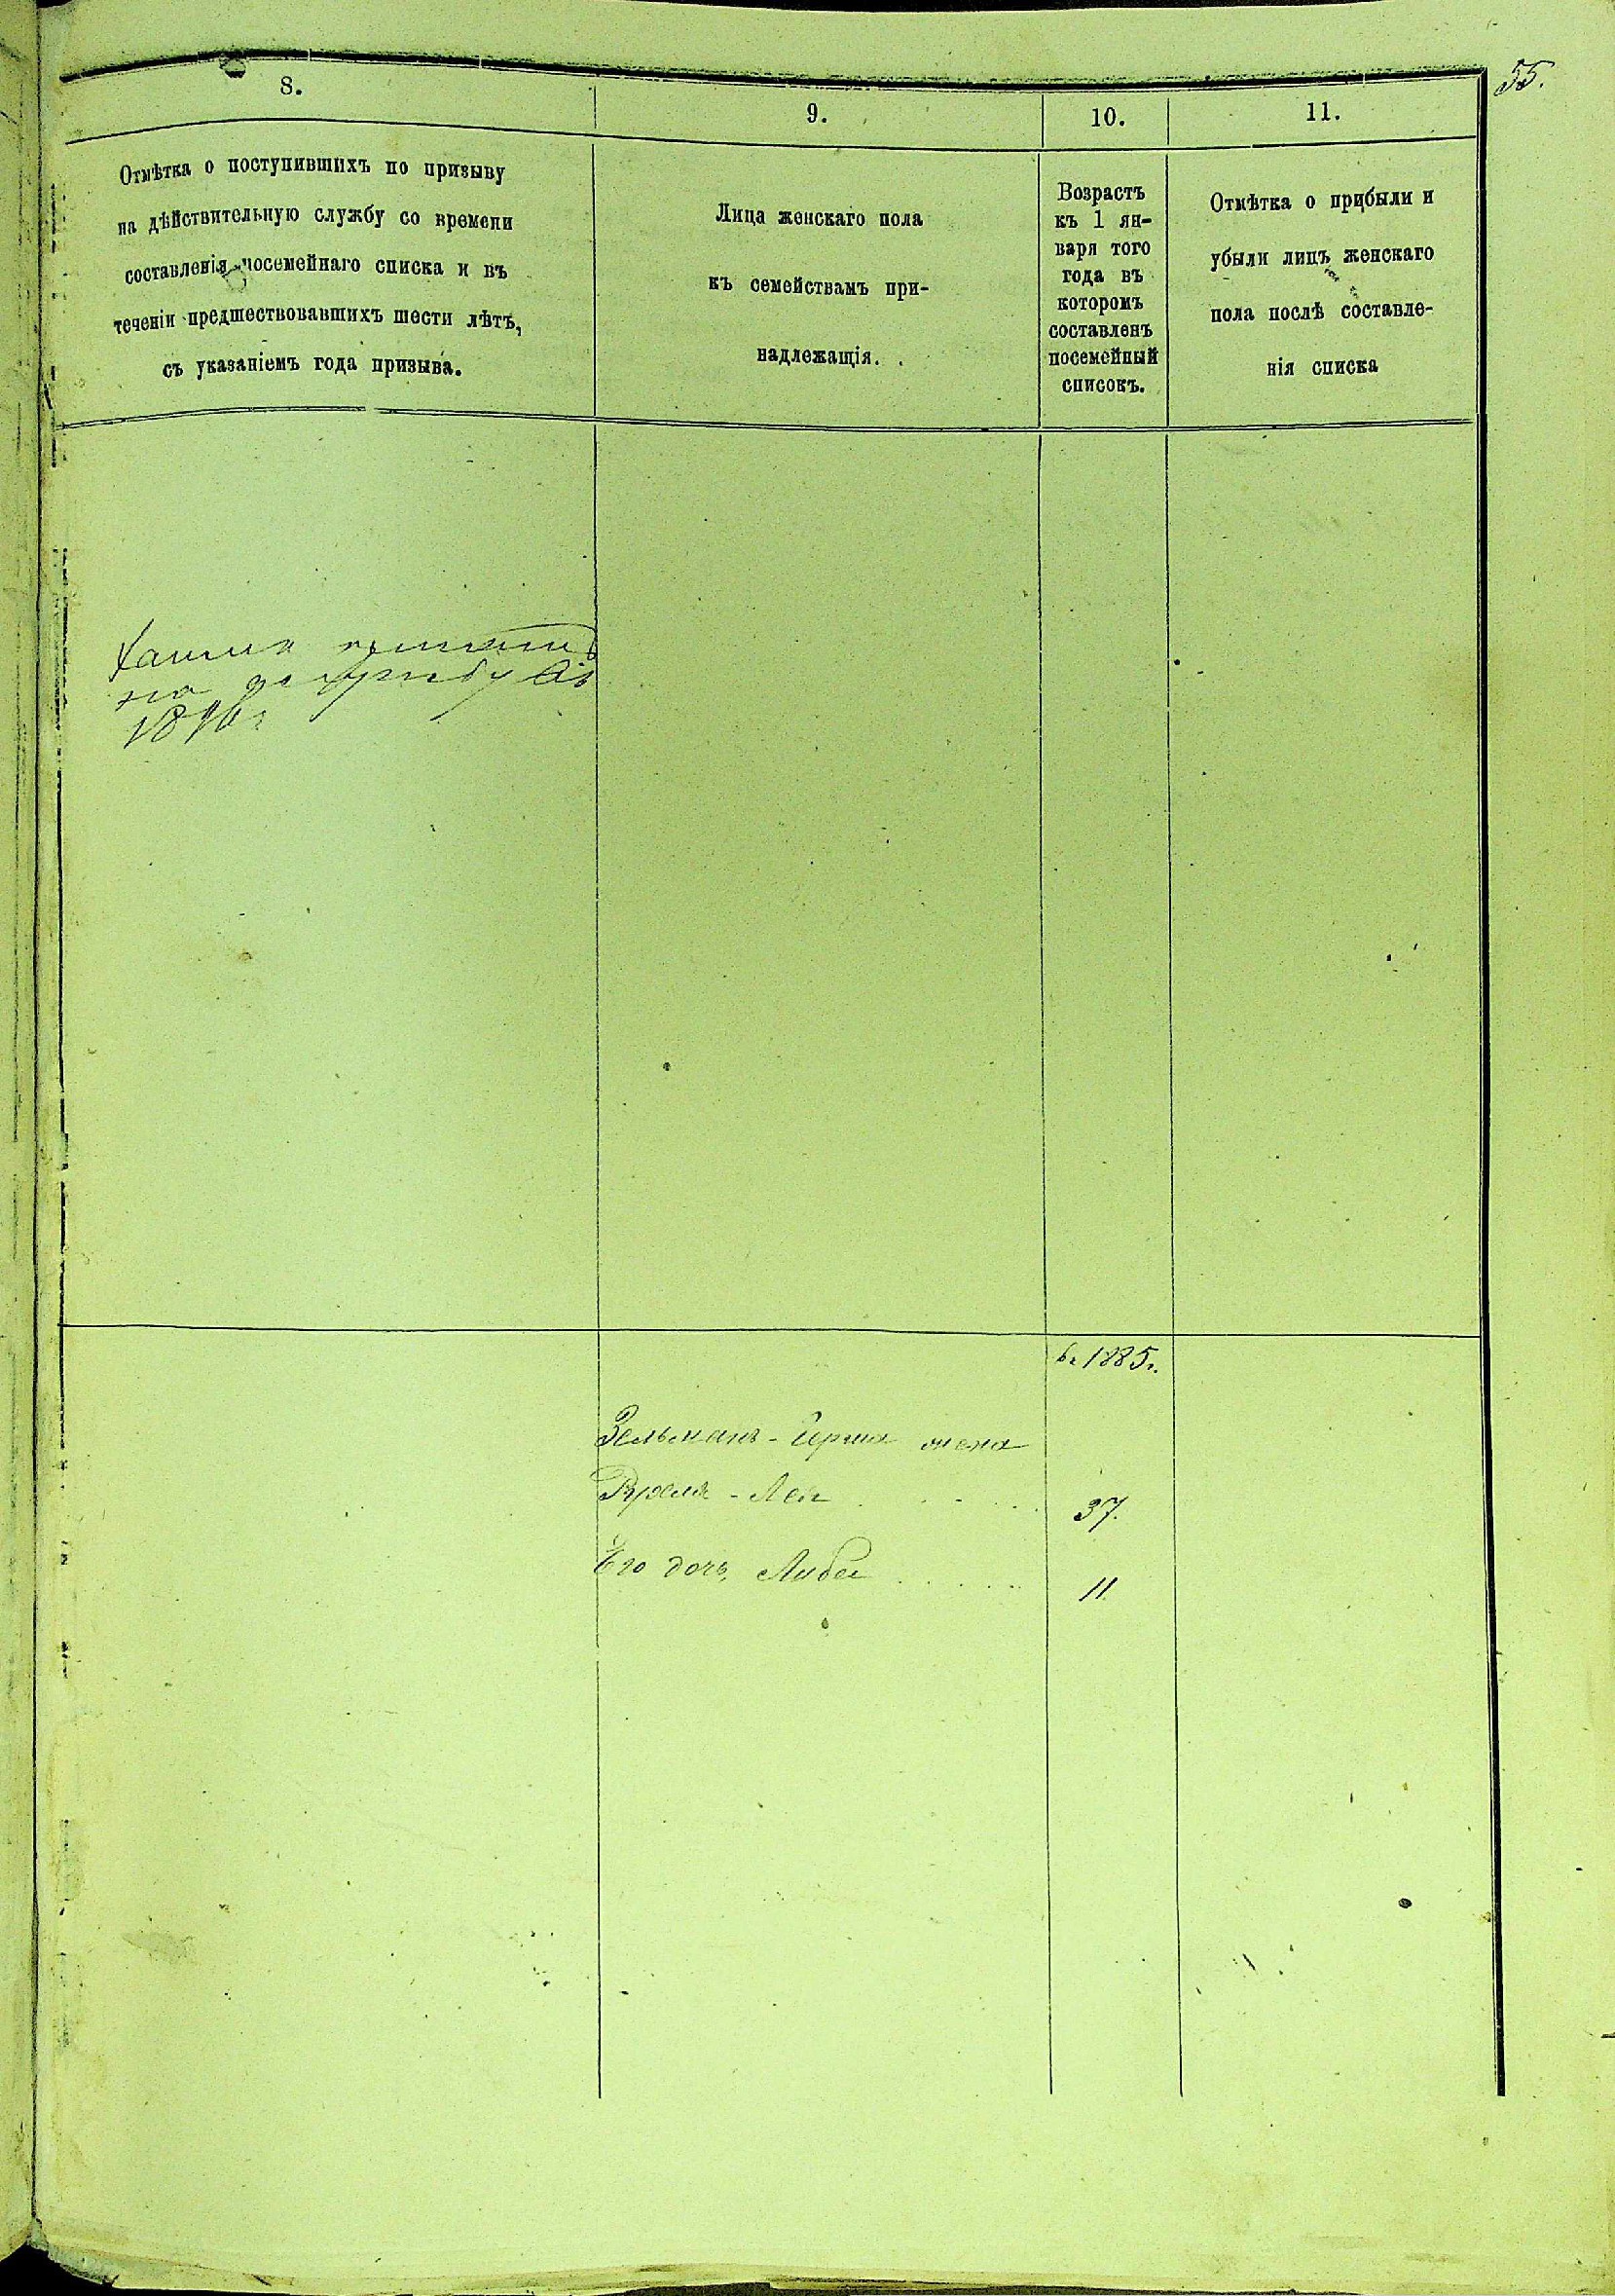 55.
8.
9.
10.
11.
Отмѣтка о поступившихъ по призыву
на дѣйствительную службу со времени
составленія посемейнаго списка и въ
теченіи предшествовавшихъ шести лѣтъ,
съ указаніемъ года призыва.
Лица женскаго пола
къ семействамъ при-
надлежащія.
Возрастъ
къ 1 ян-
варя того
года въ
которомъ
составленъ
посемейный
списокъ.
Отмѣтка о прибыли и
убыли лицъ женскаго
пола послѣ составле-
нія списка
на
въ 1885г.
Зельманъ-Герша жена
Лея 37.
Его дочь Либа 11